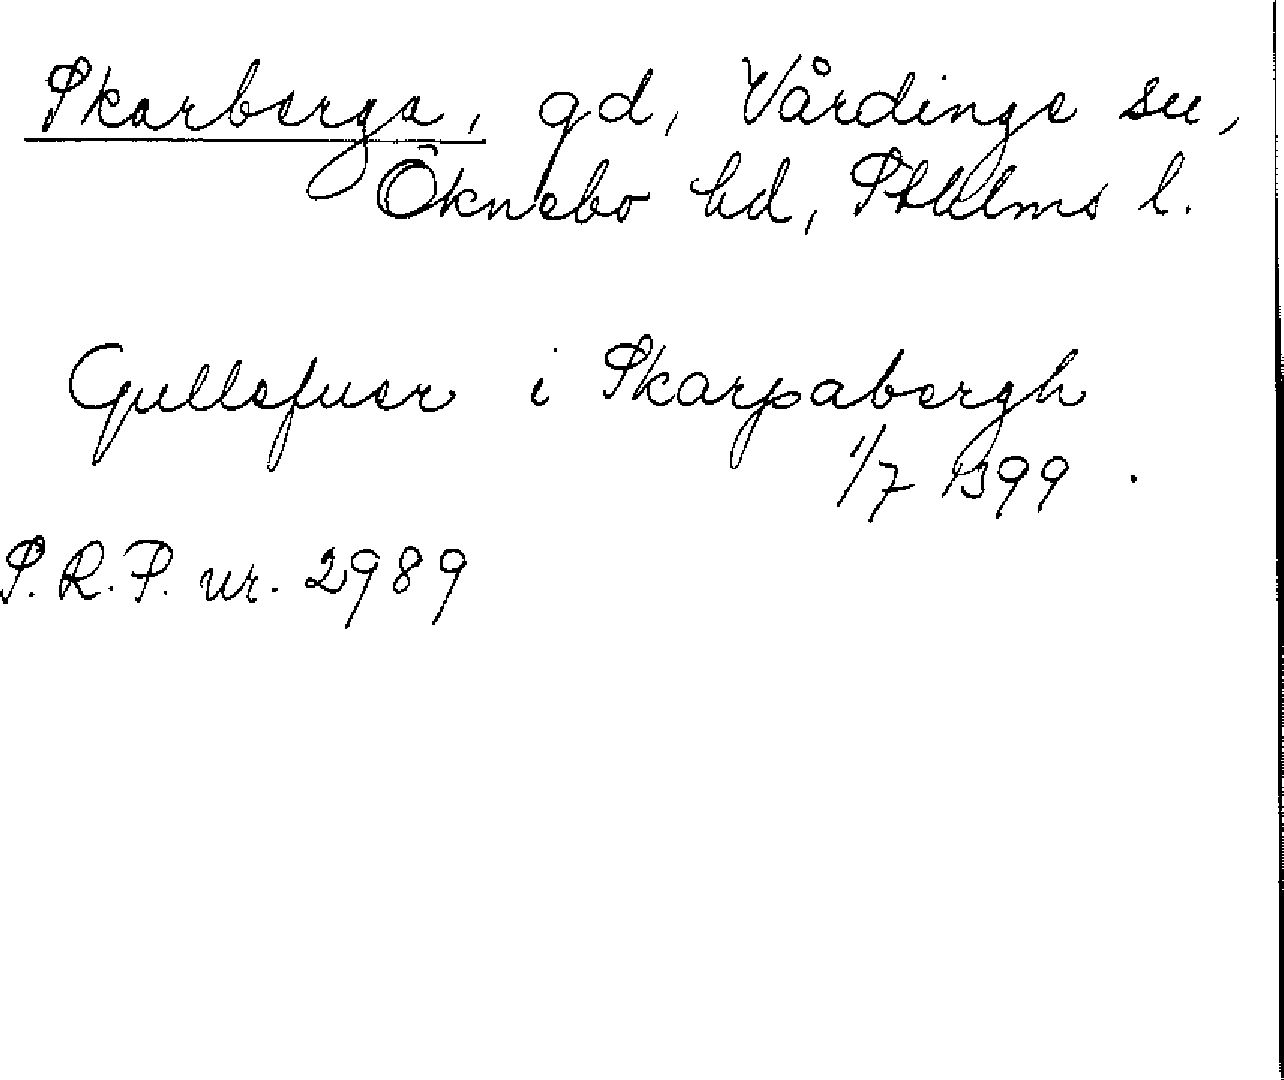 Skarberga, gd, Vårdinge sn,
Öknebo hd, Sthlms l.
Gullefuer i Skarpabergh
1/7 1399.
S.R.P. nr. 2989